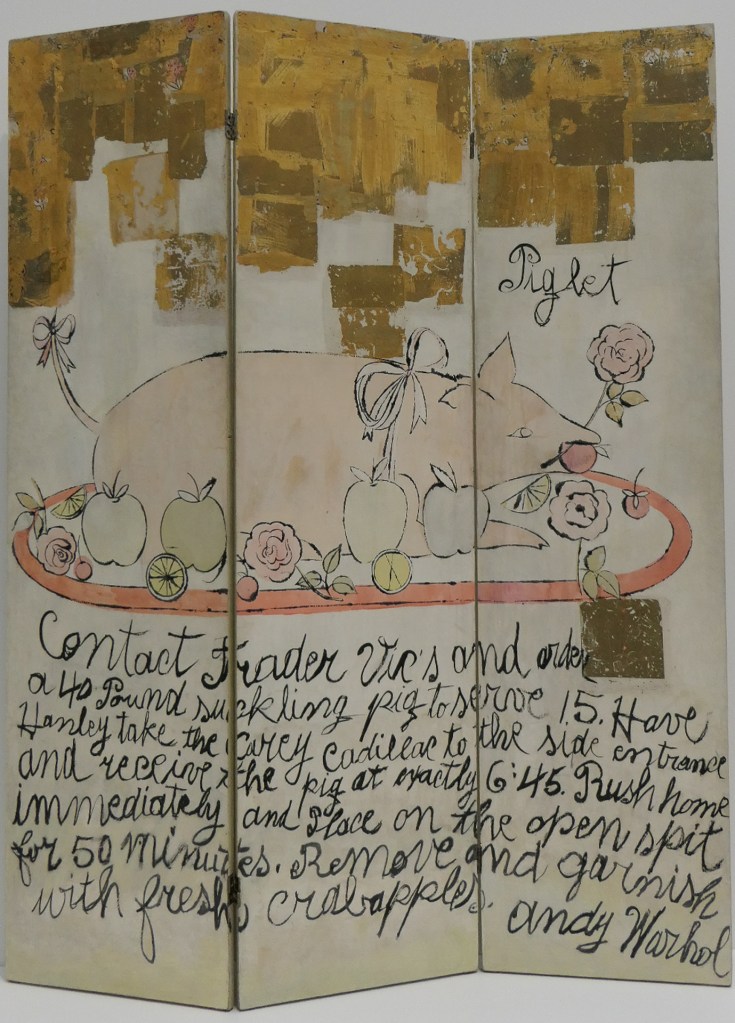 Piglet
Contact Trader Vic's and order
a 40 Pound suckling pig to serve 15. Have
Hanley take the Carey Cadillac to the side entrance
and receive the pig at exactly 6:45. Rush home
immediately and Place on the open spit
for 50 minutes. Remove and garnish
with fresh crabapples.
andy Warhol